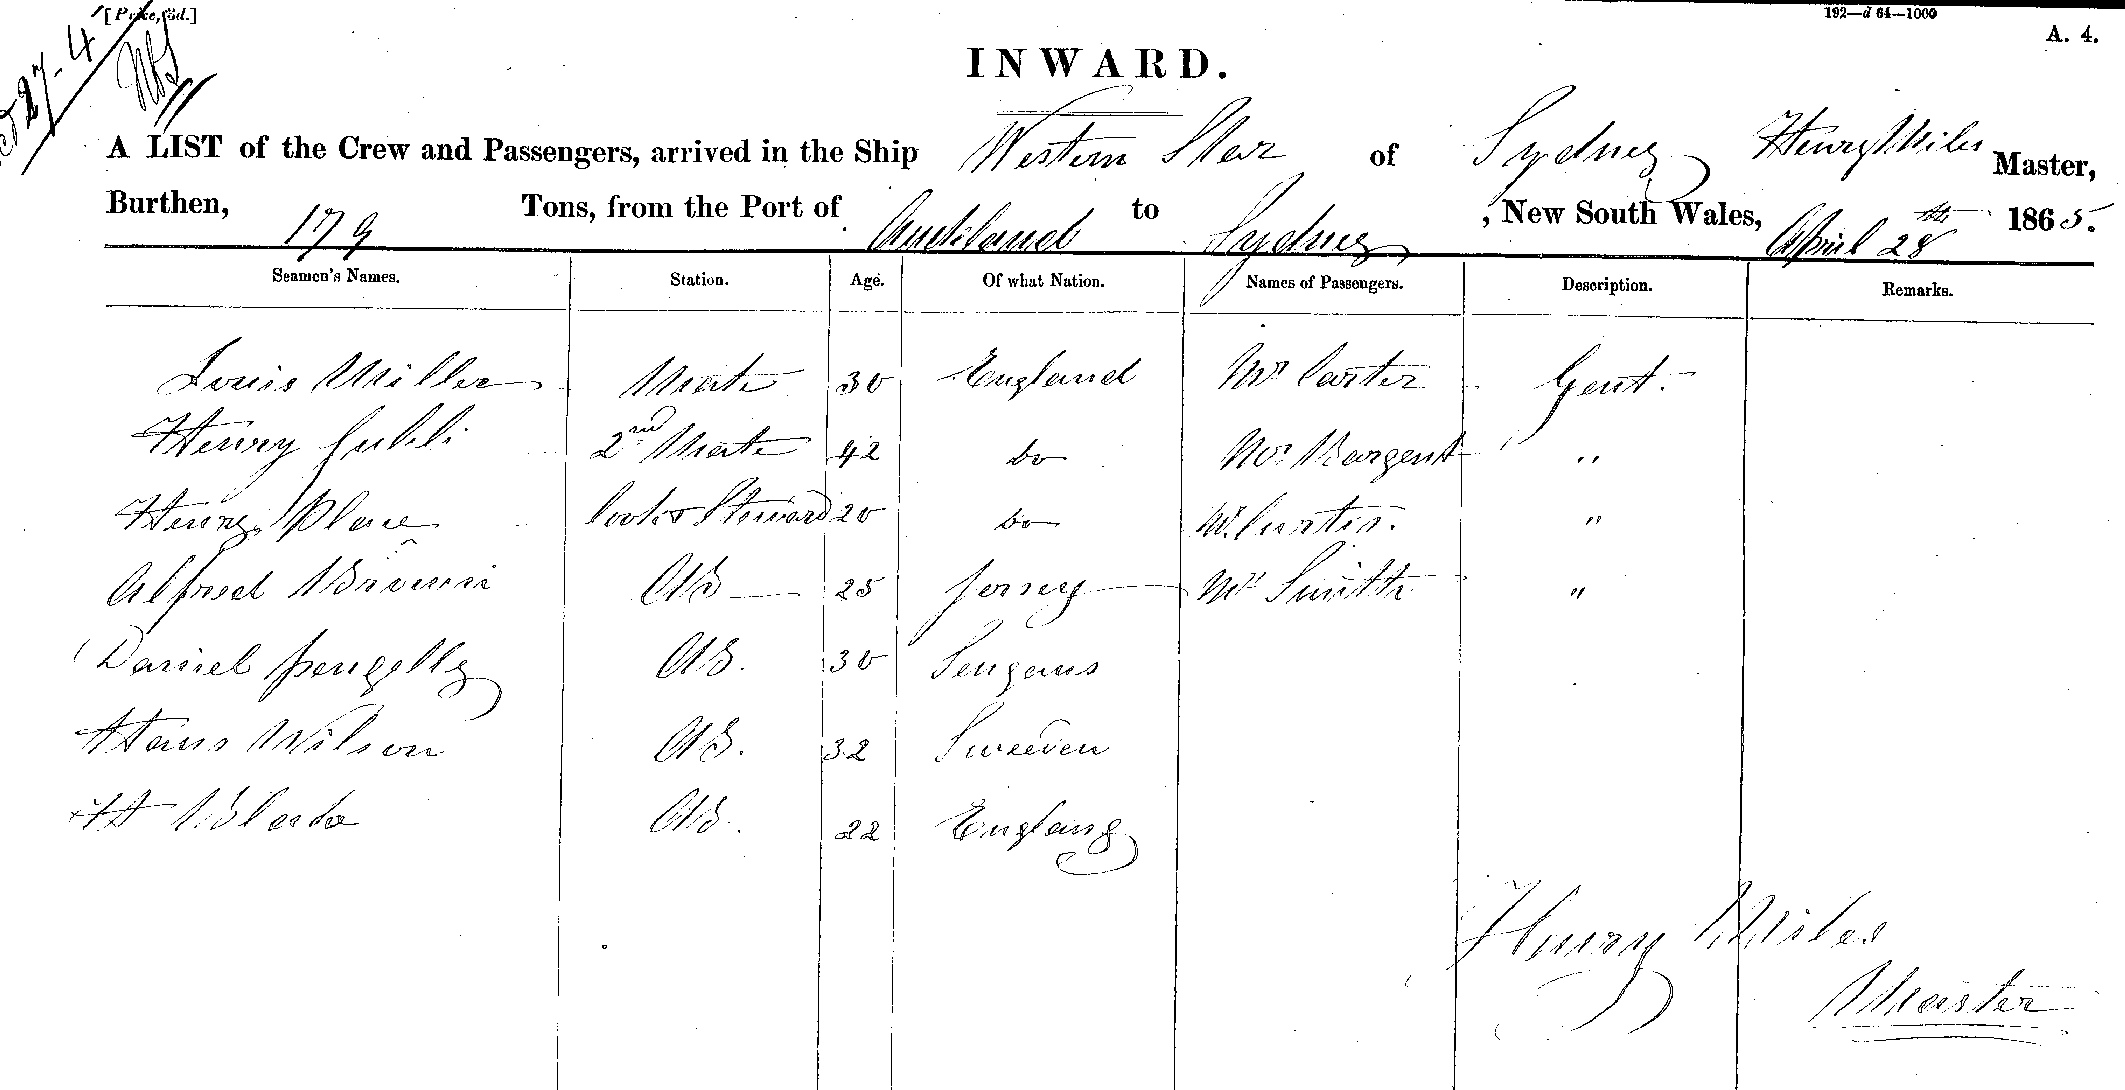 [Price, 3d.]
192—d 64—1000
A. 4.
27-4
INWARD.
A LIST of the Crew and Passengers, arrived in the Ship Western Star of Sydney Henry Miles Master,
Burthen, 179 Tons, from the Port of Auckland to Sydney, New South Wales, April 28th 1865.
Seamen's Names. Station. Age. Of what Nation. Names of Passengers. Description. Remarks.
Louis Miller Mate 30 England Mr Carter Gent.
Henry 2nd Mate 42 Do Mr Bargent "
Henry Place Cook & Steward 20 Do Mr Curtis. "
Alfred Brown AB 25 Jersey Mr Smith "
Daniel Pengelly AB. 30
Hans Wilson AB. 32 Sweeden
H AB. 22 England
Henry Miles
Master